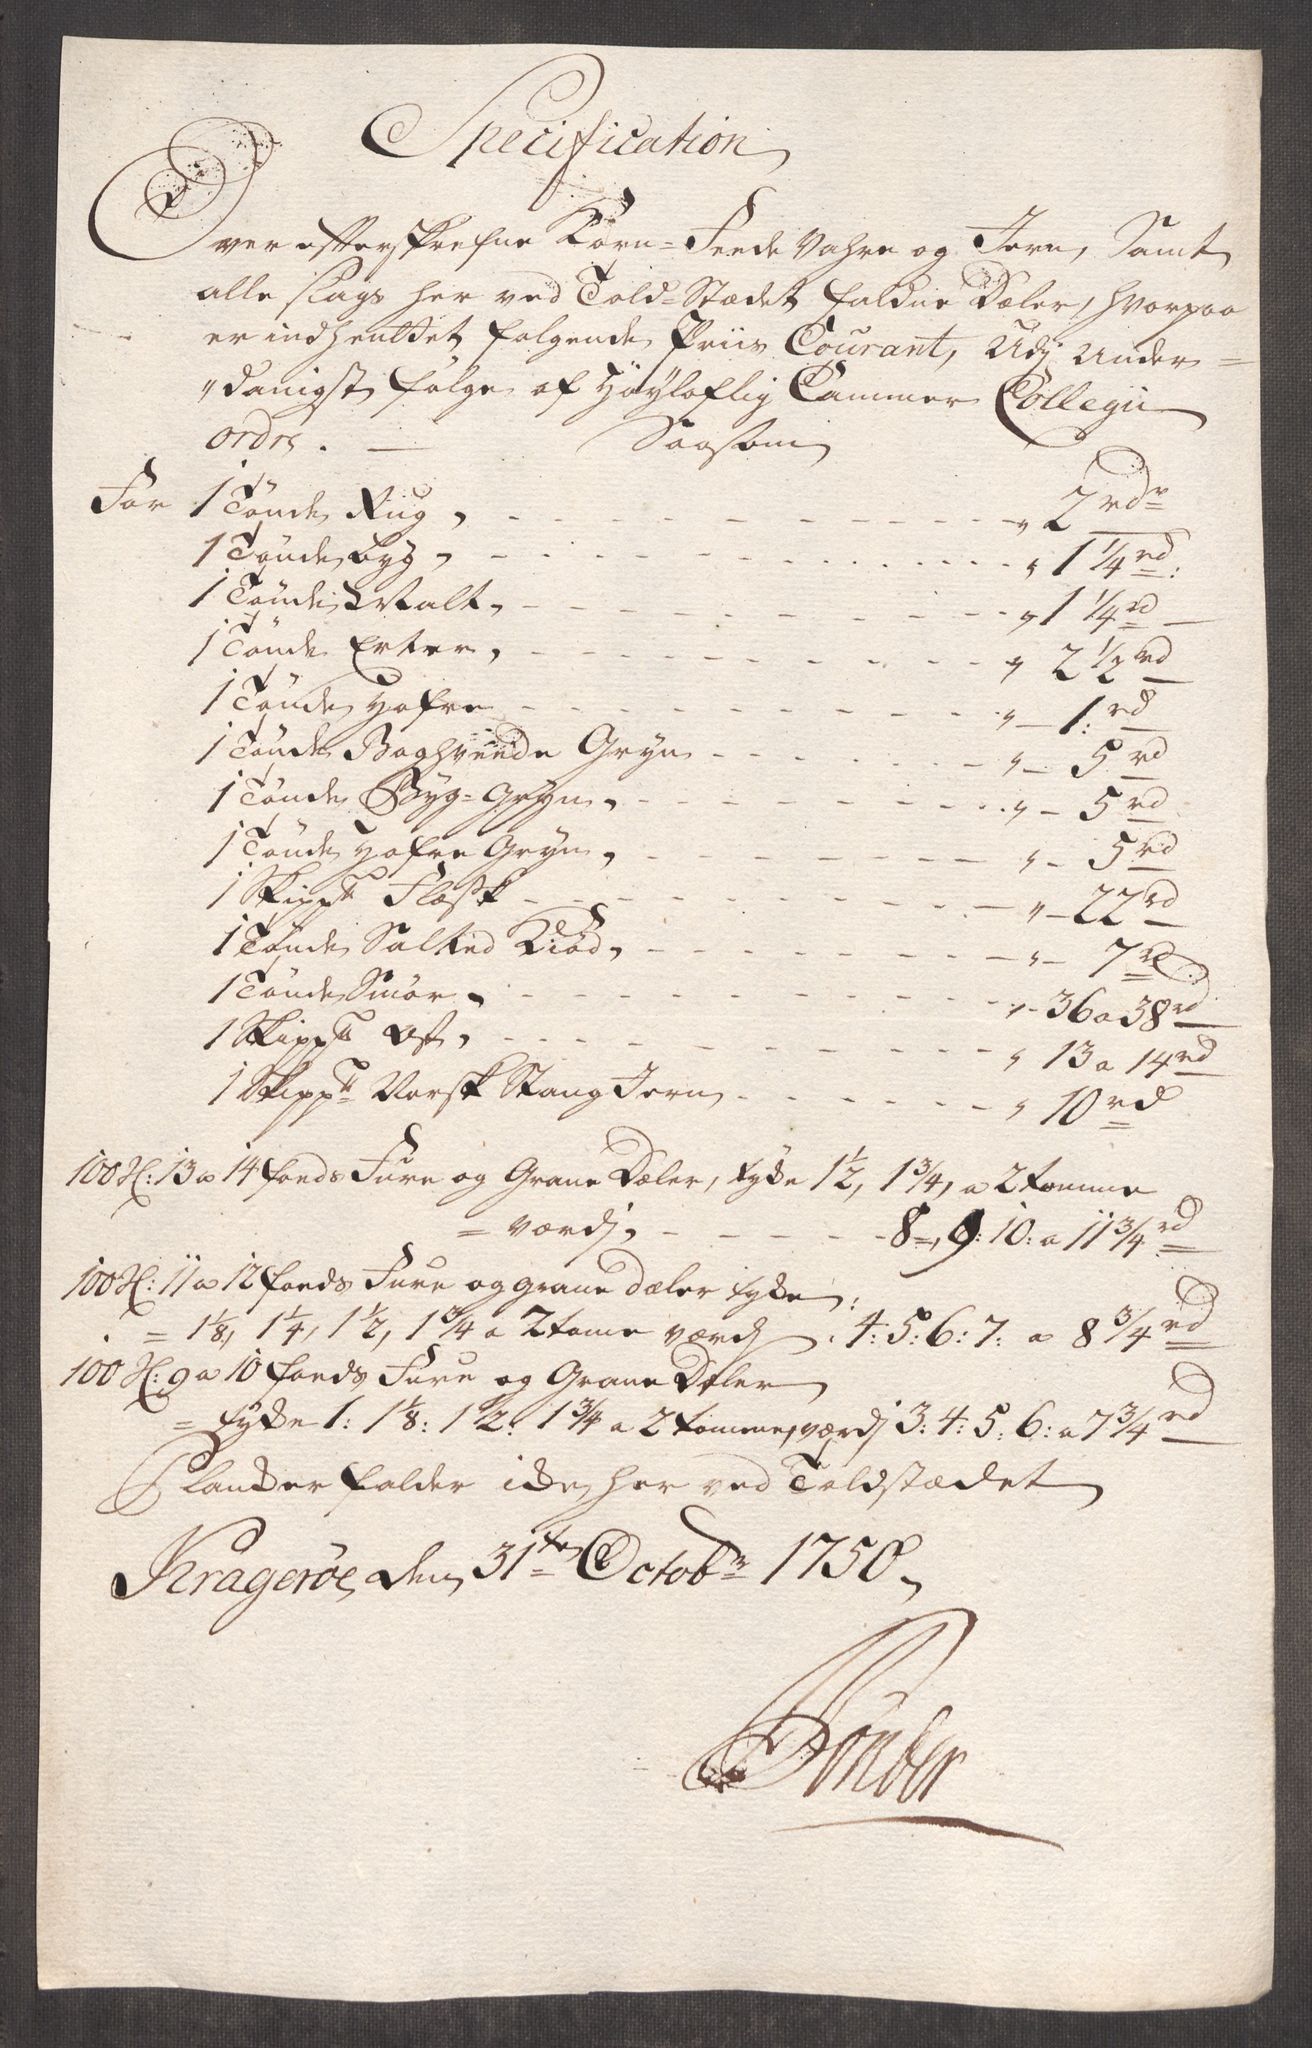 Specification
Over efterskrefne Korn- Feede Vahre og Jern, Samt
alle slags her ved Told-Stædet faldne Dæler, hvorpaa
er indhentet følgende Priis Courant, Udj Under=
"danigst følge af Höyloflig Cammer Collegii
ordre. — Saasom
For 1 Tönde Rug, - - - " 2 rdr
1 Tönde byg, - - - " 1 1/4 rd:
1 Tönde Malt, - - - " 1 1/4 rd
1 Tönde Erter, - - - " 2 1/2 rd
1 Tönde Hafre - - - " 1: rd
1 Tönde Boghveede Gryn - - - " 5 rd
1 Tönde Byg-Gryn, - - - " 5 rd
1 Tönde Hafre Gryn, - - - " 5 rd
1 Skippd Flæsk - - - " 22 rd
1 Tönde Salted Kiöd, - - - " 7 rd
1 Tönde Smör, - - - " 36 a 38 rd
1 Skippd Ost, - - - " 13 a 14 rd
1 Skippd Norsk Stang Jern - - - " 10 rd
100 st: 13 a 14 foeds Furu og Grane Dæler, tykke 1 1/2, 1 3/4, a 2 tomme
= værdj, - - - 8, 9: 10: a 11 3/4 rd
100 st: 11 a 12 foeds Furu og grane dæler tykke:
= 1 1/8, 1 1/4, 1 1/2, 1 3/4 a 2 tome værdj . 4: 5: 6: 7: a 8 3/4 rd
100 st: 9 a 10 foeds Furu og Grane Dæler
= tykke 1: 1 1/8: 1 1/2: 1 3/4 a 2 tomme, værdj 3: 4: 5: 6: a 7 3/4 rd
Plancker falder icke her ved Toldstædet
Krageröe den 31te Octobr 1750,